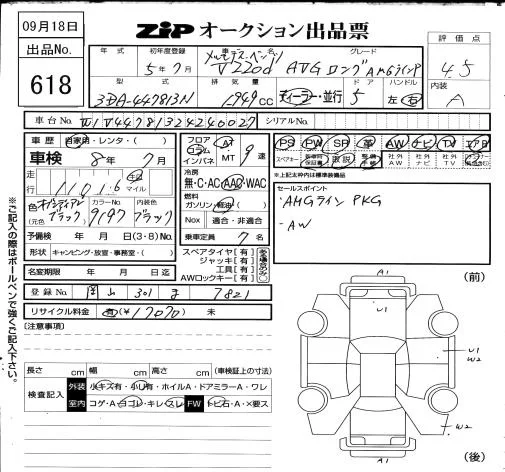 09月18日
ZiP オークション出品票
出品No.
618
年式 初年度登録 車名 グレード
5年7月 メルセデス・ベンツ V220d AVG ロング AMGライン P
型式 排気量 ドア ハンドル
3DA-447813N 1949cc ディーラー・並行 5 左・右
評価点
4.5
内装
A
車台No. W1V44781324240027 シリアルNo.
車歴 自家用・レンタ・( )
車検 8年7月
走行 マイル
色(元色) ブラック カラーNo. 9197 内装色 ブラック
予備検 年 月 日(3・8)No.
形状 キャンピング・放宣・事務室・( )
名変期限 年 月 日迄
フロア コラム インパネ AT MT 9速
冷房 無・C・AC・AAC・WAC
燃料 ガソリン・軽油・( )
Nox 適合・非適合
乗車定員 7名
スペアタイヤ[有]
ジャッキ[有]
工具[有]
AWロックキー[有]
PS PW SR 革 AW ナビ TV エアB
スペアキー 新車時保証書 取説 整備手帳 社外AW 社外ナビ 社外TV
※上記太枠内は標準装備品
セールスポイント
・AMGライン PKG
・AW
登録No. 301 ま 7821
リサイクル料金 有(¥17070) 未
[注意事項]
長さ cm 幅 cm 高さ cm (車検証上の寸法)
検査記入 外装 小キズ有・小凹有・ホイルA・ドアミラーA・ワレ
室内 コゲ・A・ヨゴレ・キレ・スレ FW トビ石・A・×要ス
※ご記入の際はボールペンで強くご記入下さい。
(前)
A1
U1
U1
W2
W2
A1
(後)